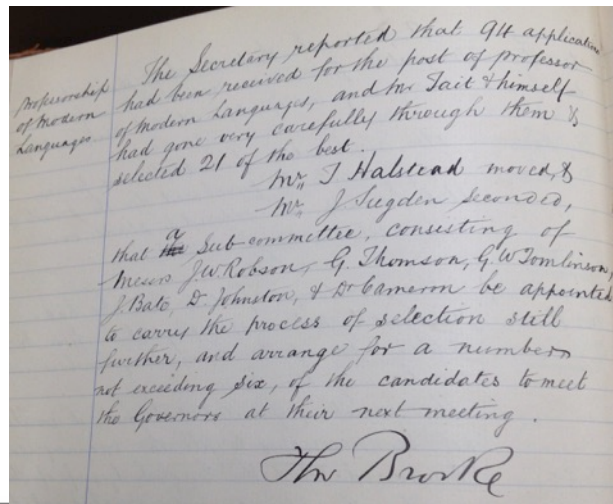 Professorship
of Modern
Languages
The Secretary reported that 94 applications
had been received for the post of professor
of Modern Languages, and Mr Tait & himself
had gone very carefully through them &
selected 21 of the best.
Mr. T Halstead moved, &
Mr. J Sugden seconded,
that a Sub-committee, consisting of
Messrs J.W Robson, G. Thomson, G.W Tomlinson,
J. Bate, D. Johnston, & Dr Cameron be appointed
to carry the process of selection still
further, and arrange for a number
not exceeding six, of the candidates to meet
the Governors at their next meeting.
Tho Brooke